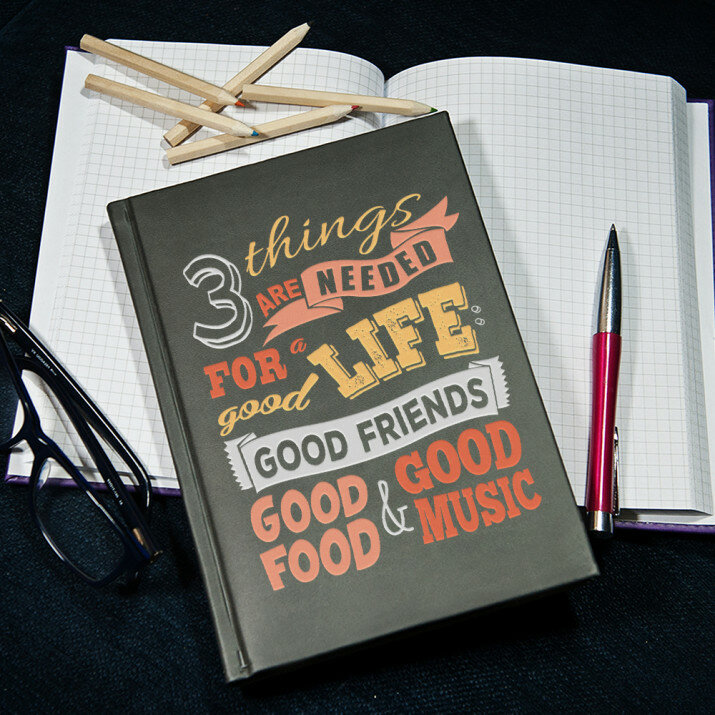 3 things
ARE NEEDED
FOR a
good LIFE
GOOD FRIENDS
GOOD
FOOD
& GOOD
MUSIC